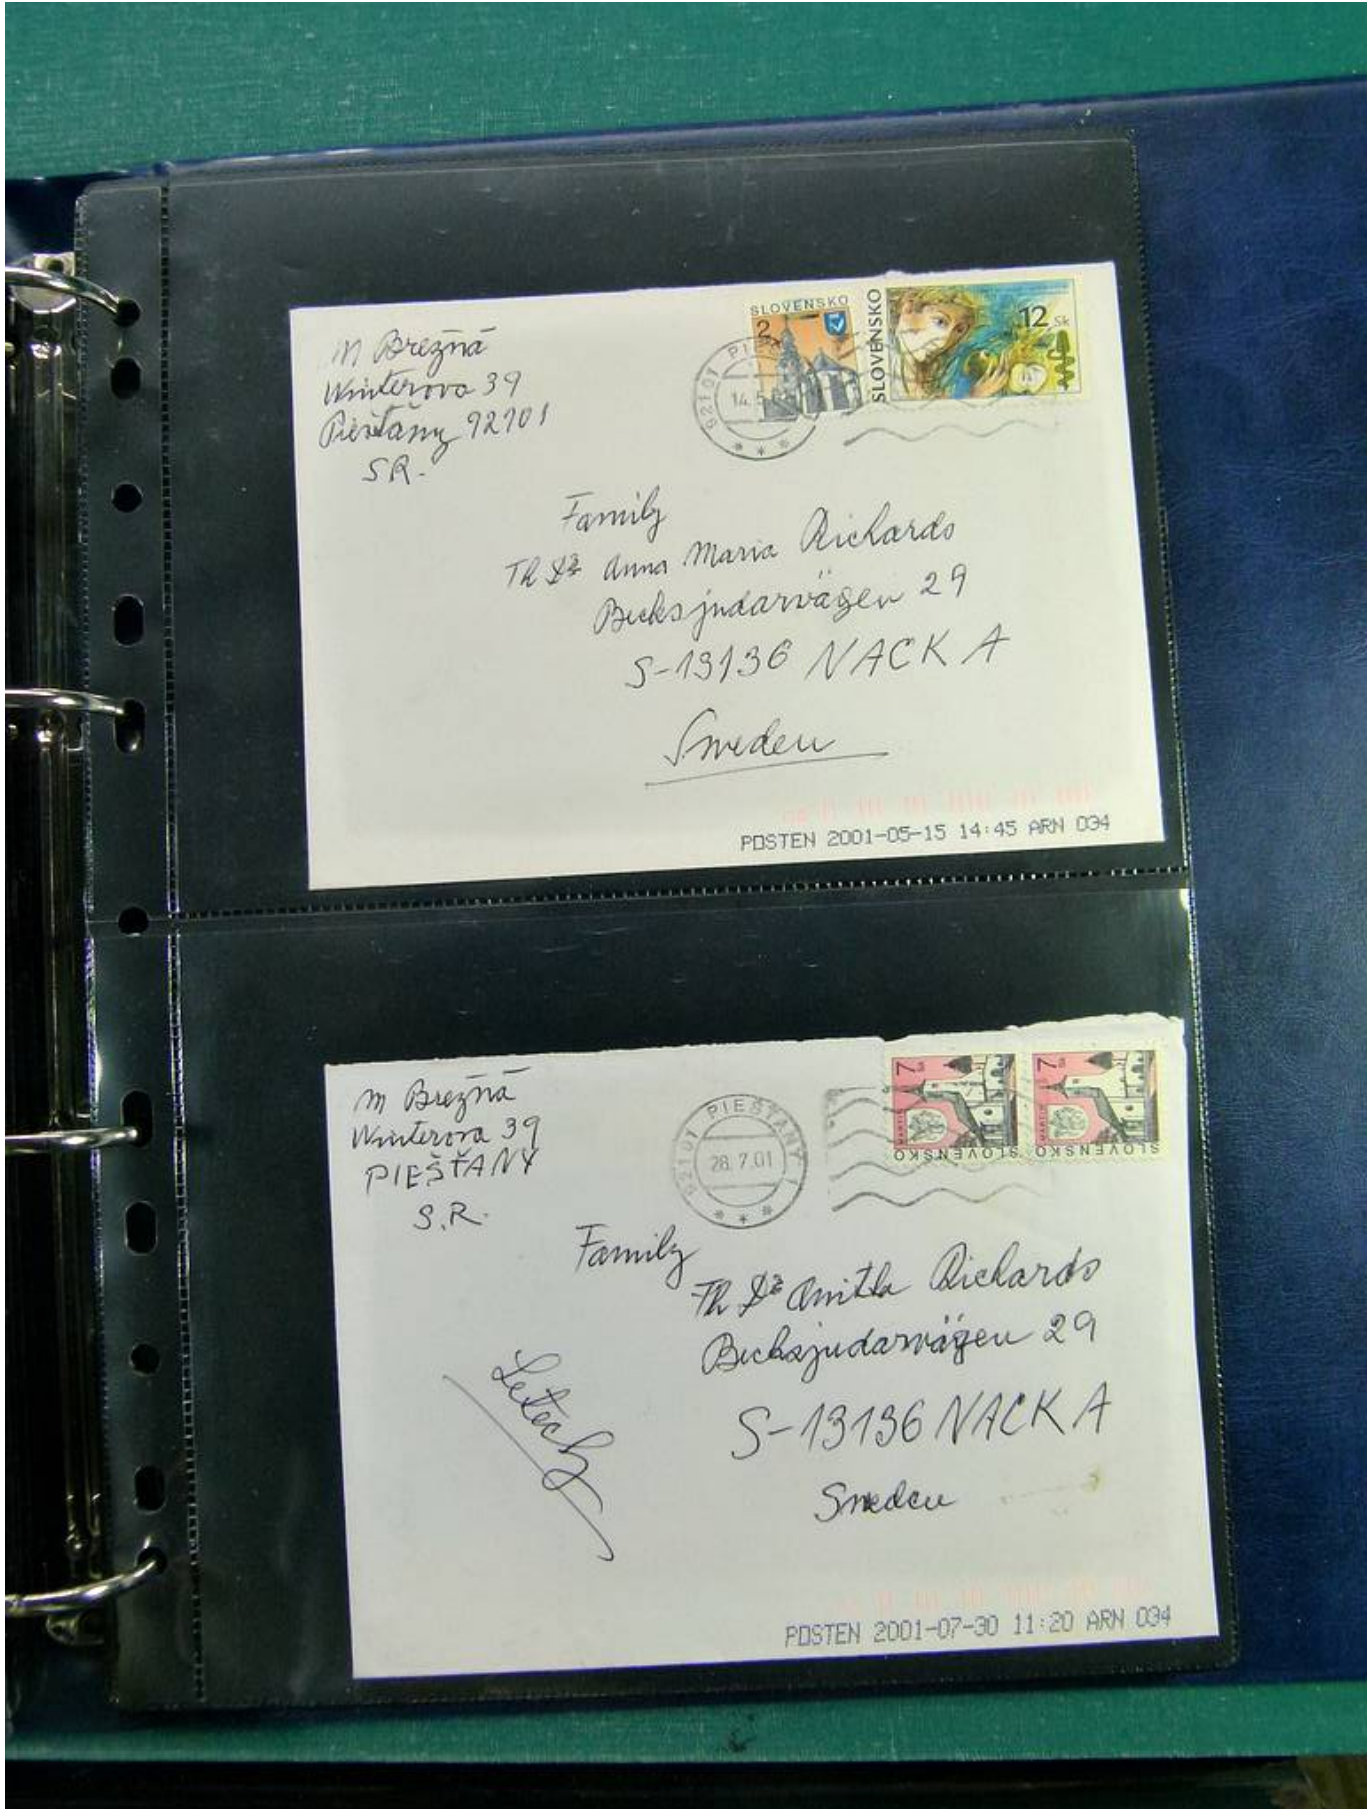 M Brezńá
Winterova 39
Piešťany 92101
SR.
SLOVENSKO
2
SLOVENSKO
12 Sk
92101 PIE
14.5
Family
Anna Maria Richards
Becksjudarvägen 29
S-13136 NACKA
Sweden
POSTEN 2001-05-15 14:45 ARN 034
M Brezńá
Winterova 39
PIEŠŤANY
S.R.
92101 PIEŠŤANY 1
28.7.01
7 Sk
MARTIN
SLOVENSKO
7 Sk
MARTIN
SLOVENSKO
Family
Richards
Becksjudarvägen 29
S-13136 NACKA
Sweden
Letecky
POSTEN 2001-07-30 11:20 ARN 034